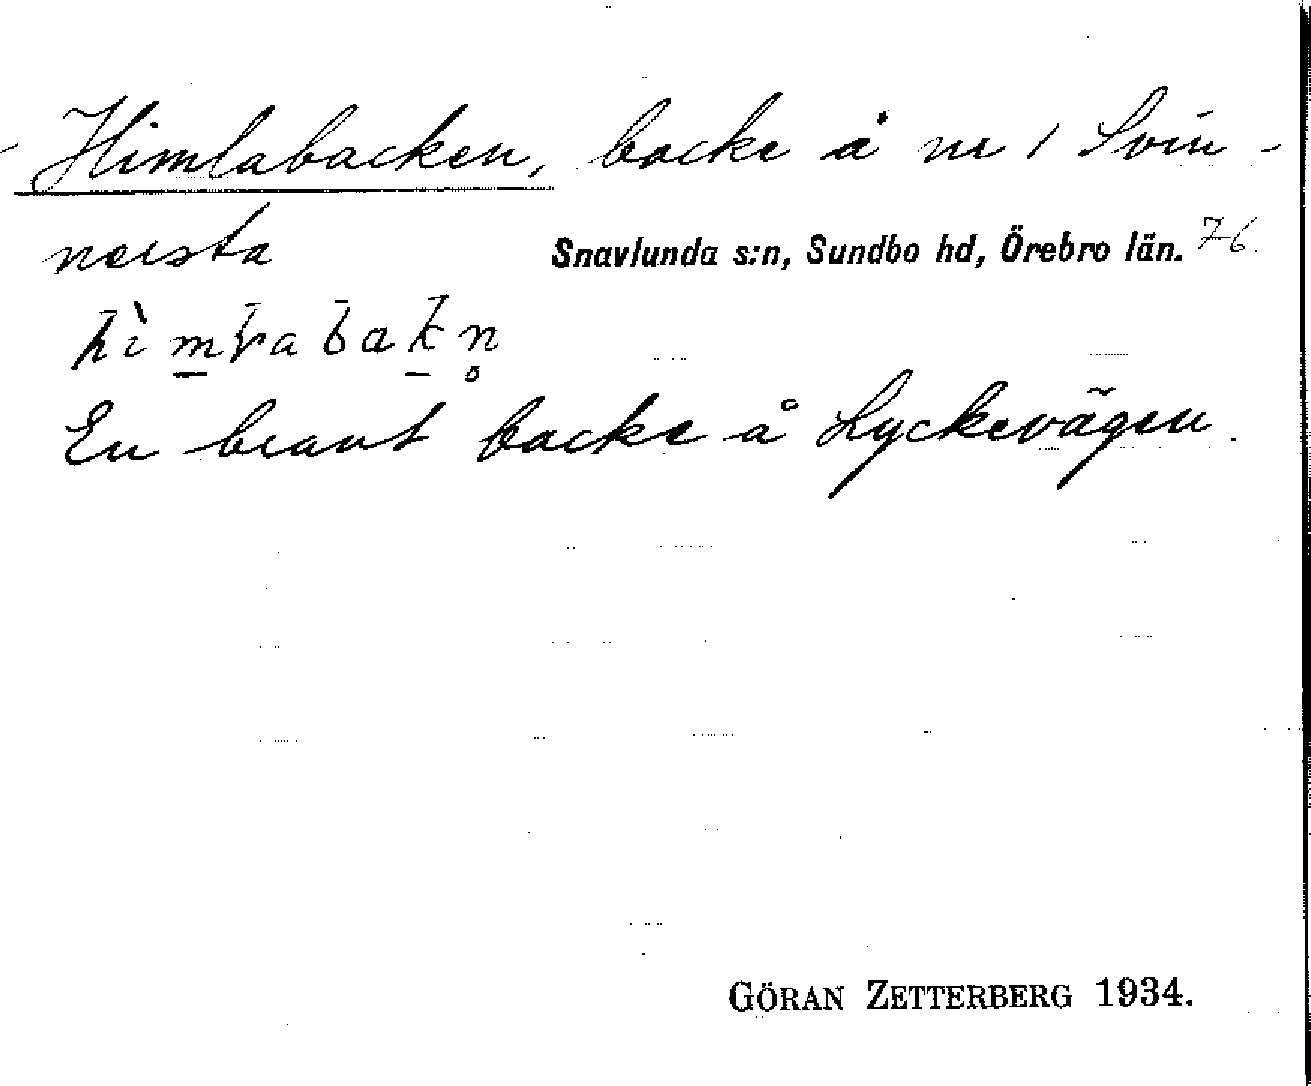 Himlabacken, backe å nr 1 Svin-
nersta
Snavlunda s:n, Sundbo hd, Örebro län. 76.
En brant backe å Lyckevägen.
GÖRAN ZETTERBERG 1934.